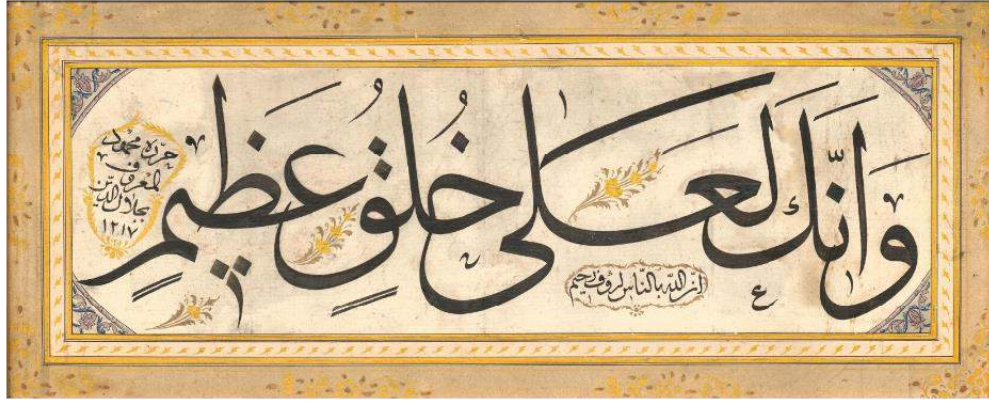 وَاِنَّكَ لَعَلٰى خُلُقٍ عَظِيمٍ
ان الله بالناس لرؤف رحيم
حرره محمود
المعروف
بجلال الدين
١٢١٧